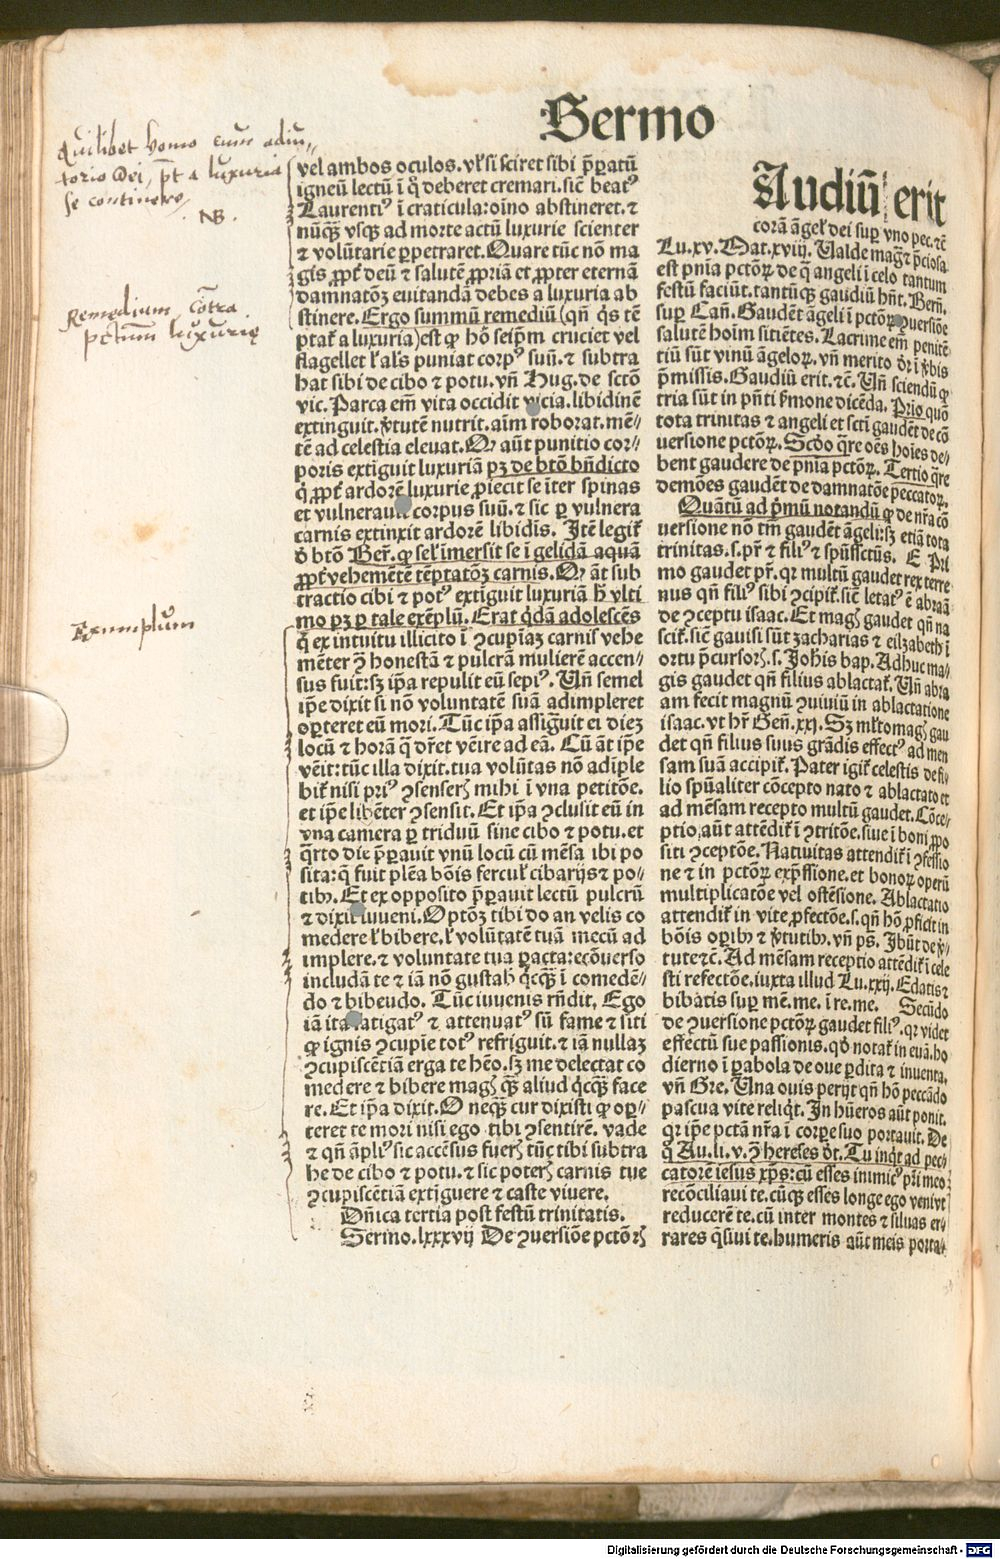 Sermo
Quilibet homo cum adiu-
torio Dei, pt a luxuria
se continere,
NB.
Remedium cōtra
pctm̄ luxurię
Exemplum
vel ambos oculos. vl' si sciret sibi p̄paratū
igneū lectū ī q̊ deberet cremari. sic̄ beat⁹
Laurenti⁹ ī craticula: oīno abstineret. ⁊
nūq̄ꝫ vsqꝫ ad morte actū luxurie scienter
⁊ volūtarie ꝑpetraret. Quare tūc nō ma
gis ꝓpt̄ deū ⁊ salutē ꝓpriā et ꝓpter eternā
damnatōꝫ euitandā debes a luxuria ab
stinere. Ergo summū remediū (qn̄ q̊s tē
ptat̄ a luxuria) est ꝙ hō seip̄m cruciet vel
flagellet l' al's puniat corp⁹ suū. ⁊ subtra
hat sibi de cibo ⁊ potu. vn̄ Hug. de scto
vic. Parca em̄ vita occidit vicia. libidinē
extinguit. v̓tutē nutrit. aīm roborat. mē-
tē ad celestia eleuat. Qꝛ aūt punitio cor-
poris extīguit luxuriā pꝫ de btō bn̄dicto
q̇ ꝓpt̄ ardorē luxurie ꝓiecit se īter spinas
et vulnerauit corpus suū. ⁊ sic ꝑ vulnera
carnis extinxit ardorē libidīs. Itē legit̄
d̓ btō Ber̄. ꝙ sel' īmersit se ī gelidā aquā
ꝓpt̄ vehemētē tēptatōꝫ carnis. Qꝛ āt sub
tractio cibi ⁊ pot⁹ extīguit luxuriā h̄ vlti
mo pꝫ ꝑ tale exēplū. Erat q̇dā adolescēs
q̇ ex intuitu illicito ī ꝯcupīaꝫ carnis vehe
mēter ꝯ̄ honestā ⁊ pulcrā mulierē accen-
sus fuit: sꝫ ip̄a repulit eū sepi⁹. Vn̄ semel
ip̄e dixit si nō voluntatē suā adimpleret
oꝑteret eū mori. Tūc ip̄a assigūit ei diez
locū ⁊ horā q̄ dr̄et vēire ad eā. Cū āt ip̄e
vēit: tūc illa dixit. tua volūtas nō adīple
bit̄ nisi pri⁹ ꝯsenseris mihi ī vna petitōe.
et ip̄e libēter ꝯsensit. Et ip̄a ꝯclusit eū in
vna camera ꝑ triduū sine cibo ⁊ potu. et
q̄rto die p̄parauit vnū locū cū mēsa ibi po
sita: q̄ fuit plēa bōis fercul' cibarijs ⁊ po-
tibꝰ. Et ex opposito p̄parauit lectū pulcrū
⁊ dixit iuueni. Optōꝫ tibi do an velis co
medere l' bibere. l' volūtatē tuā mecū ad
implere. ⁊ voluntate tua ꝑacta: ecōuerso
includā te ⁊ iā nō gustab q̇cq̄ꝫ ī comedē-
do ⁊ bibendo. Tūc iuuenis rn̄dit. Ego
iā ita fatigat⁹ ⁊ attenuat⁹ sū fame ⁊ siti
ꝙ ignis ꝯcupīe tot⁹ refriguit. ⁊ iā nullaꝫ
ꝯcupiscētiā erga te hēo. sꝫ me delectat co
medere ⁊ bibere magꝭ q̄ꝫ aliud q̇cq̄ꝫ face
re. Et ip̄a dixit. O neq̄ꝫ cur dixisti ꝙ oꝑ-
teret te mori nisi ego tibi ꝯsentirē. vade
⁊ qn̄ āpli⁹ sic accēsus fueris tūc tibi subtra
he de cibo ⁊ potu. ⁊ sic poteris carnis tue
ꝯcupiscētiā extīguere ⁊ caste viuere.
Dn̄ica tertia post festū trinitatis.
Sermo. lxxxvij De ꝯuersiōe pctōrꝭ
Audiū erit
corā āgel' dei suꝑ vno pec. ⁊c̄
Lu. xv. Mat. xviij. Valde mag̅ ⁊ p̄ciosa
est pn̄ia pctōꝝ de q̄ angeli ī celo tantum
festū faciūt. tantūcꝫ gaudiū hn̄t. Bern̄.
suꝑ Can̄. Gaudēt āgeli ī pctōꝝ ꝯuersiōe
salutē hoīm sitiētes. Lacrime em̄ penitē
tiū sūt vinū āgeloꝝ. vn̄ merito dr̄ ī v̓bis
p̄missis. Gaudiū erit. ⁊c̄. Vn̄ sciendū ꝙ
tria sūt in pn̄ti ẜmone dicēda. Prīo quō
tota trinitas ⁊ angeli et scti gaudēt de cō
uersione pctōꝝ. Scd̓o q̄re oēs hoīes de-
bent gaudere de pn̄ia pctōꝝ. Tertio q̄re
demōes gaudēt de damnatōe peccatoꝝ.
Quātū ad p̄mū notandū ꝙ de nr̄a cō
uersione nō tm̄ gaudēt āgeli: sꝫ etiā tota
trinitas. s. pr̄ ⁊ fili⁹ ⁊ spūssctūs. E Pri
mo gaudet pr̄. qꝛ multū gaudet rex terre
nus qn̄ fili⁹ sibi ꝯcipit̄. sic̄ letat⁹ ē abraā
de ꝯceptu isaac. Et magꝭ gaudet qn̄ na
scit̄. sic̄ gauisi sūt zacharias ⁊ elizabeth ī
ortu p̄cursorꝭ. s. Joh̄is bap. Adhuc ma-
gis gaudet qn̄ filius ablactat̄. Vn̄ abra
am fecit magnū ꝯuiuiū in ablactatione
isaac. vt hr̄ Gen̄. xxj. Sꝫ ml̄tomagꝭ gau
det qn̄ filius suus grādis effect⁹ ad men
sam suā accipit̄. Pater igit̄ celestis de fi
lio spūaliter cōcepto nato ⁊ ablactato et
ad mēsam recepto multū gaudet. Cōce-
ptio aūt attēdit̄ ī ꝯtritōe. siue ī boni ꝓpo
siti ꝯceptōe. Natiuitas attendit̄ ī ꝯfessio
ne ⁊ in pctōꝝ exp̄ssione. et bonoꝝ operū
multiplicatōe vel ostēsione. Ablactatio
attendit̄ in vite ꝓfectōe. s. qn̄ hō ꝓficit in
bōis oꝑibꝰ ⁊ v̓tutibꝰ. vn̄ ps. Ibūt de v̓-
tute ⁊c̄. Ad mēsam receptio attēdit̄ ī cele
sti refectōe. iuxta illud Lu. xxij. Edatis ⁊
bibatis suꝑ mē. me. ī re. me. Secūdo
de ꝯuersione pctōꝝ gaudet fili⁹. qꝛ videt
effectū sue passionis. qd̓ notat̄ in euā. ho
dierno ī ꝑabola de oue ꝑdita ⁊ inuenta.
vn̄ Gre. Una ouis perijt qn̄ hō peccādo
pascua vite reliq̇t. In hūeros aūt ponit.
qꝛ ip̄e pctā nr̄a ī corꝑe suo portauit. De
q̊ Au. li. v. ꝯ̄ hereses dt̄. Tu inq̇t ad pec-
catorē iesus xp̄s: cū esses inimic⁹ pr̄i meo
recōciliaui te. cūqꝫ esses longe ego veni vt
reducerē te. cū inter montes ⁊ siluas er-
rares q̄siui te. humeris aūt meis porta-
Digitalisierung gefördert durch die Deutsche Forschungsgemeinschaft - DFG